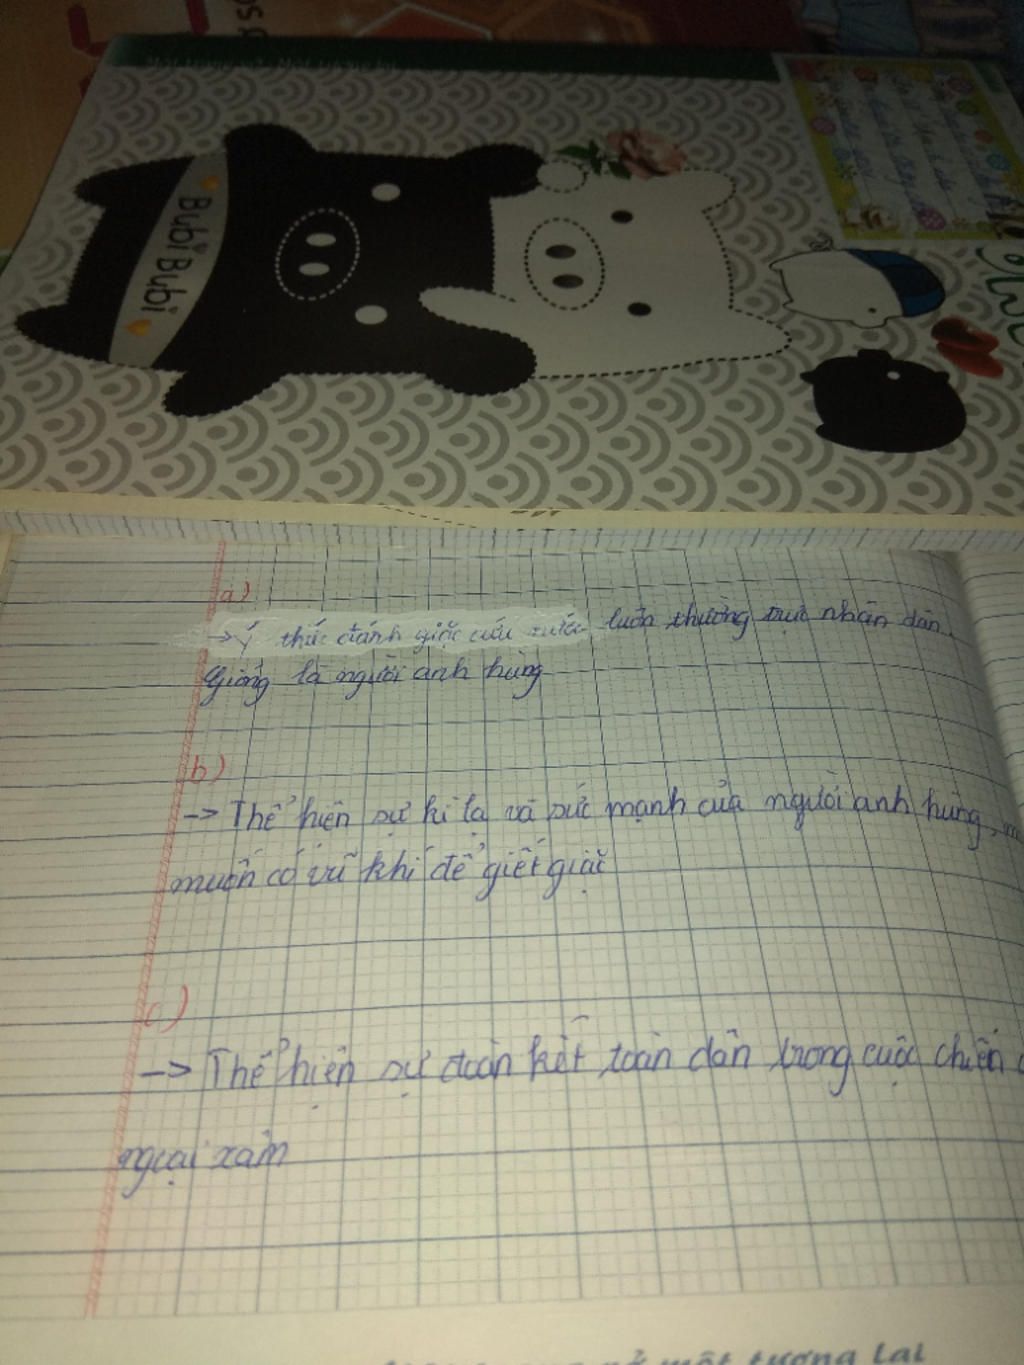 Bubi Bubi
a)
→ Ý thức đánh giặc cứu nước luôn thường trực nhân dân.
Gióng là người anh hùng
b)
→ Thể hiện sự kì lạ và sức mạnh của người anh hùng,
muốn có vũ khí để giết giặc
c)
→ Thể hiện sự đoàn kết toàn dân trong cuộc chiến
ngoại xâm
một tương lai